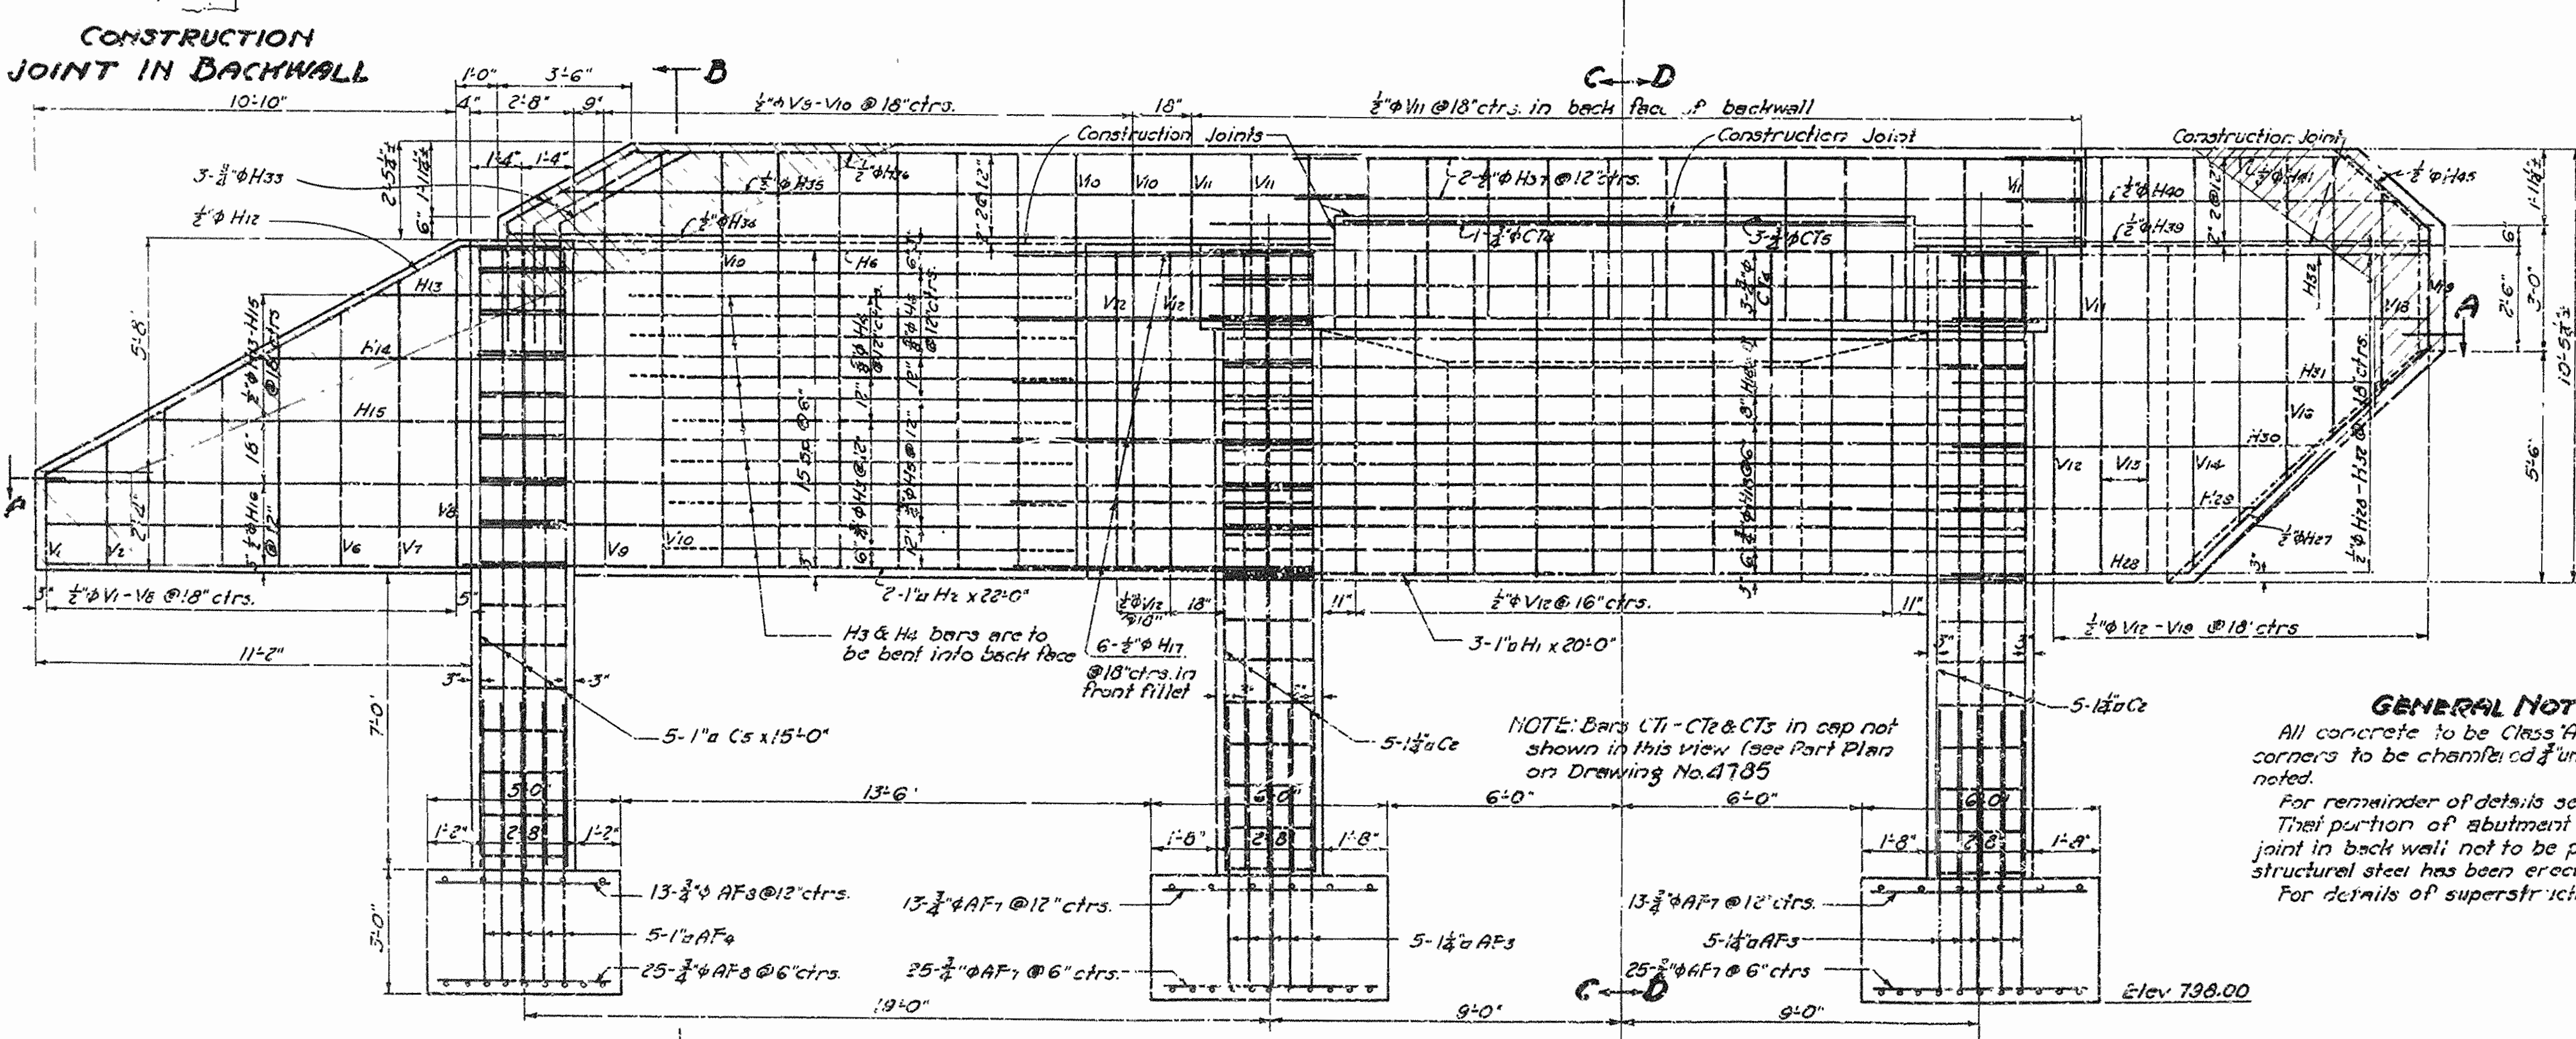 CONSTRUCTION
JOINT IN BACKWALL
1'-0" 3'-6" B C D
10'-10" 4" 2'-8" 9" ½"ϕV9-V10 @ 18"ctrs. 18" ½"ϕV11 @ 18"ctrs. in back face of backwall
Construction Joints Construction Joint Construction Joint
1'-4" 1'-4"
3-¾"ϕH33 ½"ϕH35 ½"ϕH36 V10 V10 V11 V11 2-½"ϕH37 @ 12"ctrs. V11 ½"ϕH40 ½"ϕH41 ½"ϕH45
½"ϕH12 6" ½"ϕH39 6"
1-¾"ϕCT4 3-¾"ϕCT5
H13 V10 H6 V12 V12 V11 H32 V18 V19 A
5'-8" 2'-6" 3'-0"
H14 H31
H15 V16
15 Sp. @ 6" H30
18" V12 V13 V14
A 2'-4" V8 H29 5'-6"
V1 V2 V6 V7 V9 V10 3" H28 ½"ϕH27 3"
3" ½"ϕV1-V8 @ 18"ctrs. 5" 2-1"▫H2 x 22'-0" ½"ϕV12 18" 11" ½"ϕV12 @ 16"ctrs. 11"
½"ϕV12-V19 @ 18"ctrs
11'-2" H3 & H4 bars are to
be bent into back face
6-½"ϕH17
@18"ctrs. in
front fillet
3-1"▫H1 x 20'-0"
3" 3" 3" 3"
7'-0" 5-1"▫C5 x 15'-0" 5-1¼"▫C2 5-1¼"▫C2
NOTE: Bars CT1-CT2 & CT3 in cap not
shown in this view (see Part Plan
on Drawing No. 4785
GENERAL NOT
All concrete to be Class A
corners to be chamfered ¾" un
noted.
For remainder of details se
That portion of abutment
joint in back wall not to be p
structural steel has been erec
For details of superstruct
5'-0" 13'-6" 6'-0" 6'-0" 6'-0" 6'-0"
1'-2" 2'-8" 1'-2" 1'-8" 2'-8" 1'-8" 1'-8" 2'-8" 1'-8"
13-¾"ϕAF8 @ 12"ctrs. 13-¾"ϕAF7 @ 12"ctrs. 13-¾"ϕAF7 @ 12"ctrs.
3'-0" 5-1"▫AF4 5-1¼"▫AF3 5-1¼"▫AF3
25-¾"ϕAF8 @ 6"ctrs. 25-¾"ϕAF7 @ 6"ctrs. 25-¾"ϕAF7 @ 6"ctrs
C D Elev 798.00
19'-0" 9'-0" 9'-0"